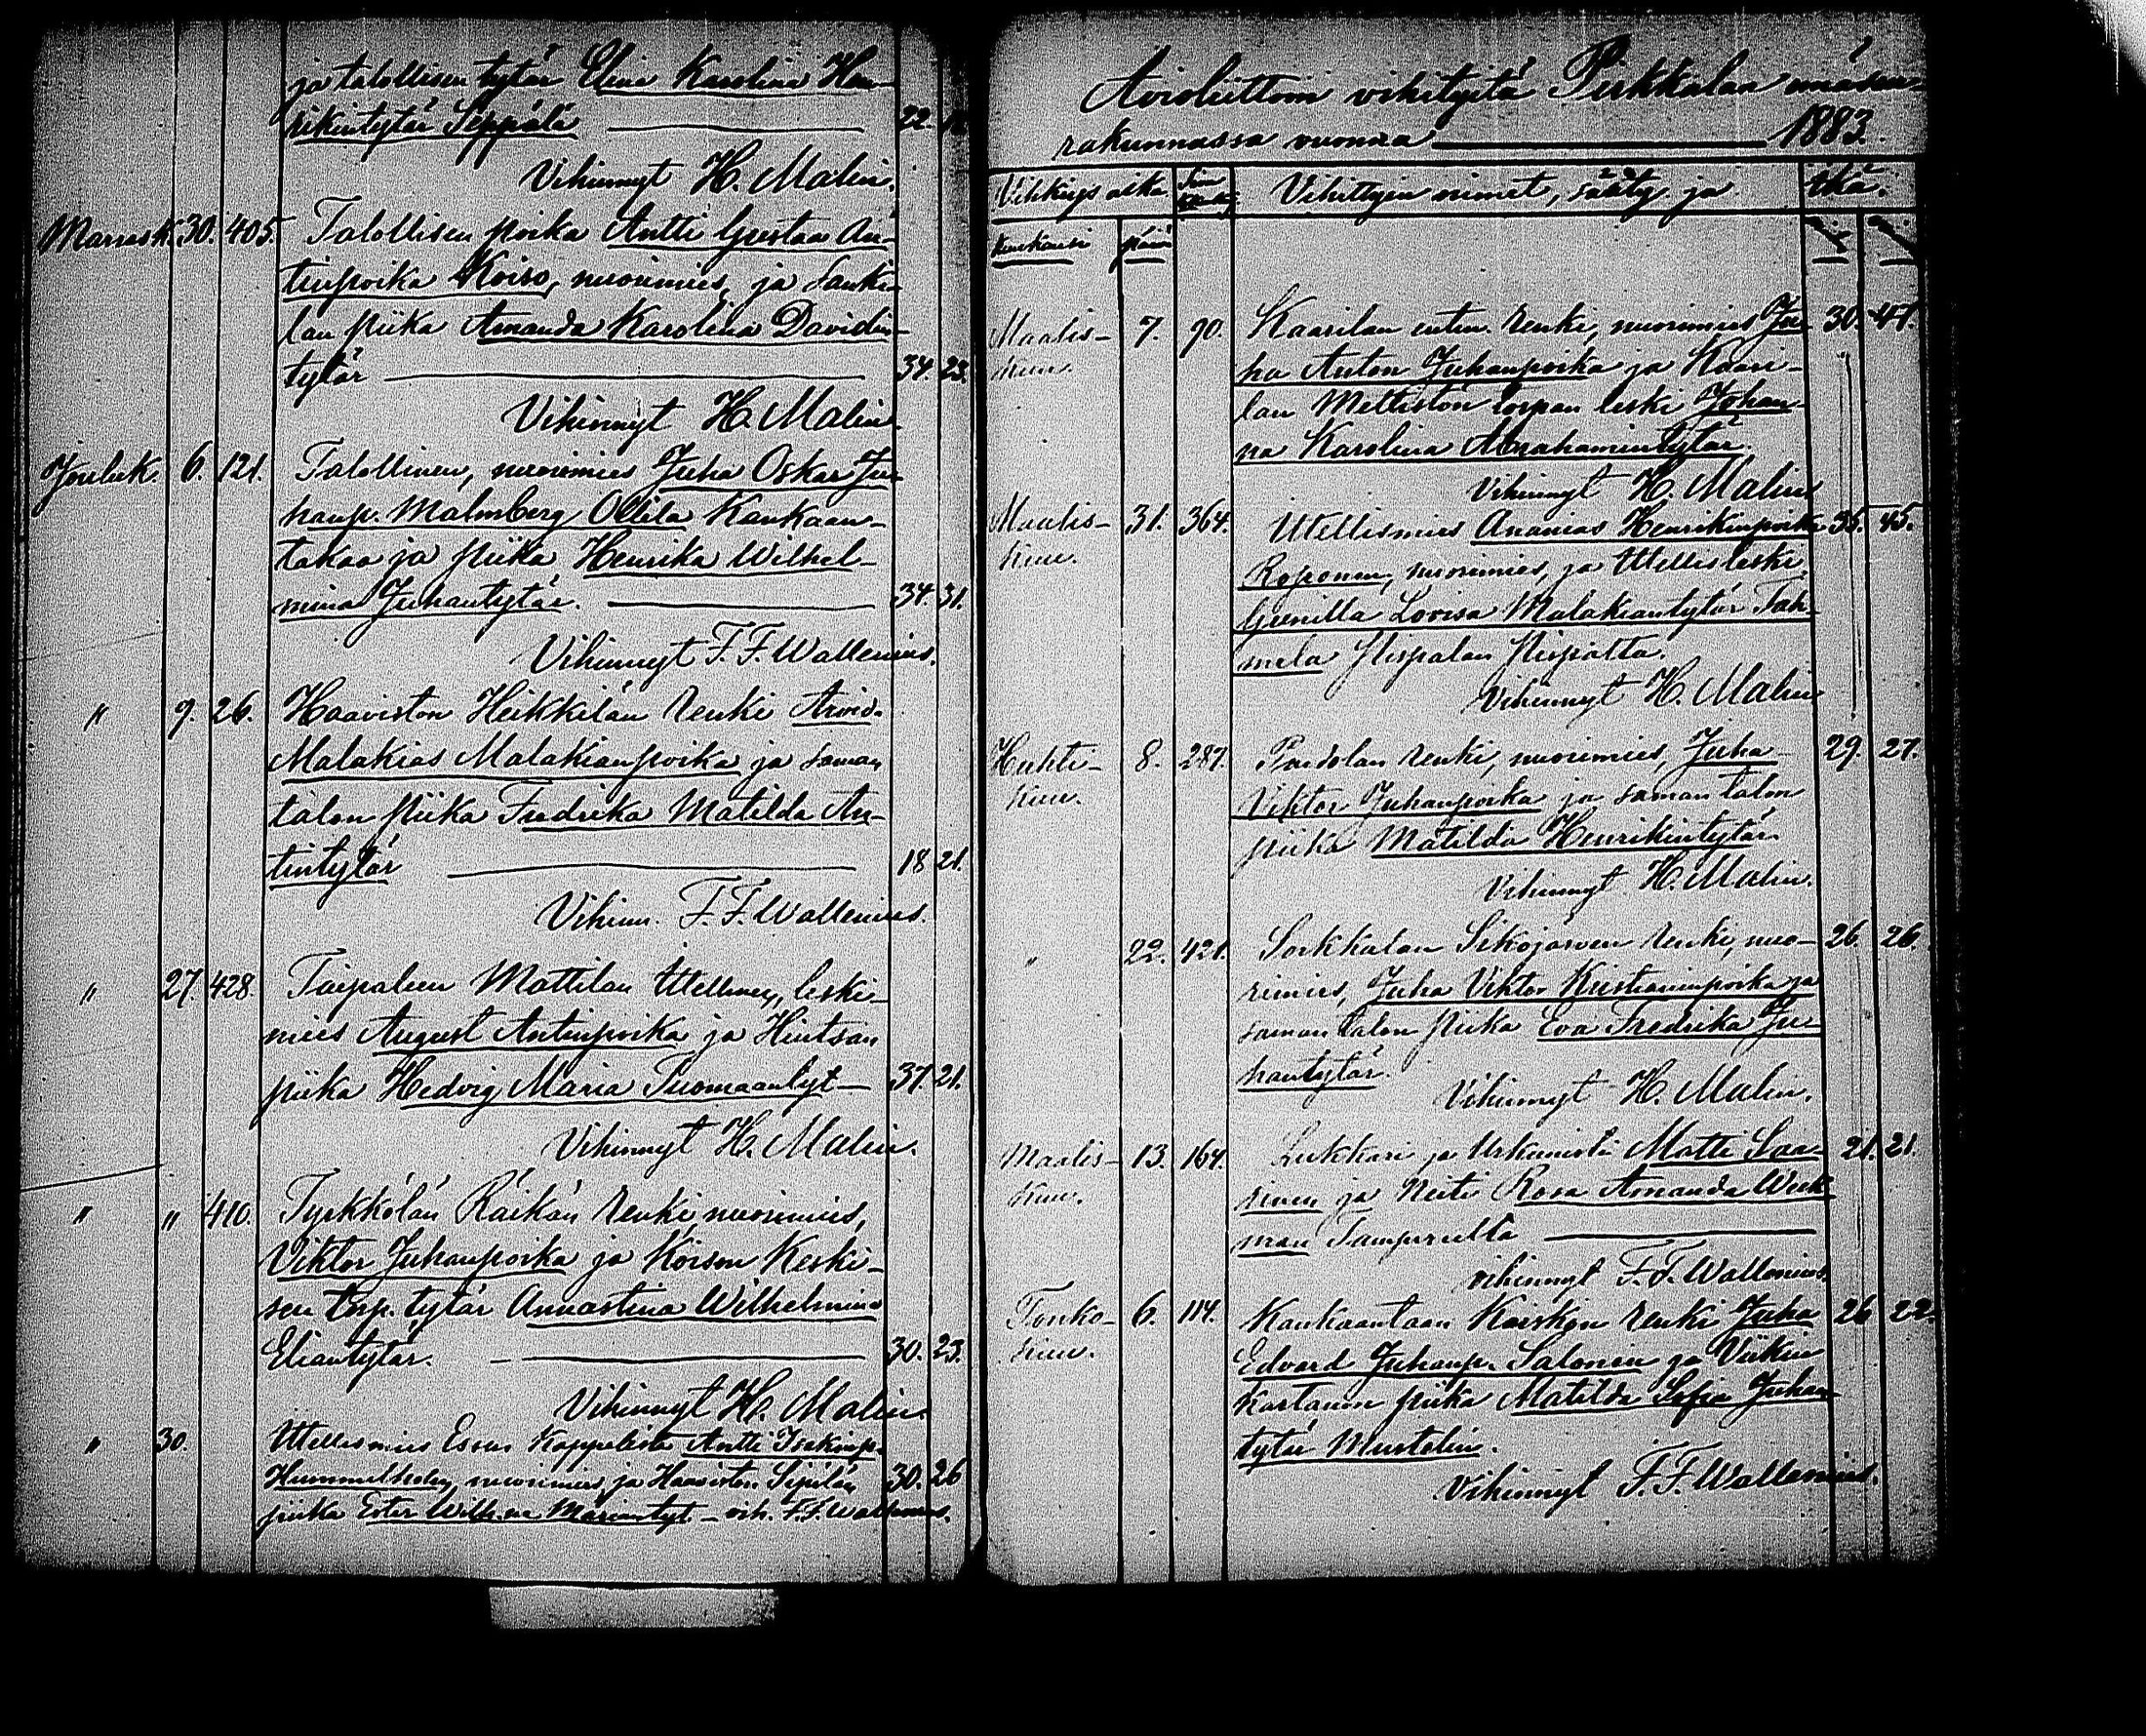 ja talollisen tytär Elina Karolina Hen-
rikintytär Seppälä 22.
Vihinnyt H. Malin.
Marrask. 30. 405. Talollisen poika Antti Gustaa An-
tinpoika Koivo, nuorimies, ja Sanki-
lan piika Amanda Karolina Davidin-
tytär 34. 23.
Vihinnyt H. Malin
Jouluk. 6. 121. Talollinen, nuorimies Juha Oskar Ju-
hanp. Malmberg Ollila Kankaan-
takaa ja piika Henrika Wilhel-
mina Juhantytär. 34. 31.
Vihinnyt F. F. Wallenius.
" 9. 26. Haaviston Heikkilän renki Arvid
Malakias Malakianpoika ja saman
talon piika Fredrika Matilda An-
tintytär 18 21.
Vihinn. F. F. Wallenius.
" 27. 428. Taipaleen Mattilan Itellinen, leski-
mies August Antinpoika ja Hintsan
piika Hedvig Maria Tuomaantyt 37. 21.
Vihinnyt H. Malin.
" " 410. Tyrkkölän Räikän renki, nuorimies,
Viktor Juhanpoika ja Koison Keski-
sen torp. tytär Annastina Wilhelmina
Eliantytär. 30. 23.
Vihinnyt H. Malin.
" 30. Itellismies Essun Kappelista Antti Isakinp.
Hummelholm, nuorimies, ja Haaviston Sipilän 30. 26
piika Ester Wilh.na Mariantyt – vih. F. F. Wallenius.
Avioliittoon vihityitä Pirkkalan emäseu-
rakunnassa vuonna 1883.
Vihkiys aika Vihittyin nimet, sääty ja ikä.
Kuukausi päivä
Maalis- 7. 90. Kaarilan enten. renki, nuorimies Ju- 30. 47.
kuu. ha Anton Juhanpoika ja Kaari-
lan Mettistön torpan leski Johan-
na Karolina Abrahamintytär.
Vihinnyt H. Malin
Maalis- 31. 364. Itellismies Ananias Henrikinpoika 35. 45.
kuu. Roponen, nuorimies, ja Itellisleski
Gunilla Lovisa Malakiantytär Tah-
mela Pispalan Pispalta.
Vihinnyt H. Malin
Huhti- 8. 287. Partolan renki, nuorimies, Juha 29. 27.
kuu. Viktor Juhanpoika ja saman talon
piika Matilda Henrikintytär
Vihinnyt H. Malin.
" 22. 421. Sorkkalan Sikojärven renki, nuo- 26. 26.
rimies, Juha Viktor Kristianinpoika ja
saman talon piika Eva Fredrika Ju-
hantytär.
Vihinnyt H. Malin.
Maalis- 13. 164. Lukkari ja Urkunisti Matti Saa- 21. 21.
kuu. rinen ja Neiti Rosa Amanda Wick-
man Tampereelta
vihinnyt F. F. Wallenius
Touko- 6. 114. Kankaantaan Knaskon renki Juha 26 22.
kuu. Edvard Juhanp. Salonen ja Viikin
kartanon piika Matilda Sofia Juhan-
tytär Mustelin.
Vihinnyt F. F. Wallenius.